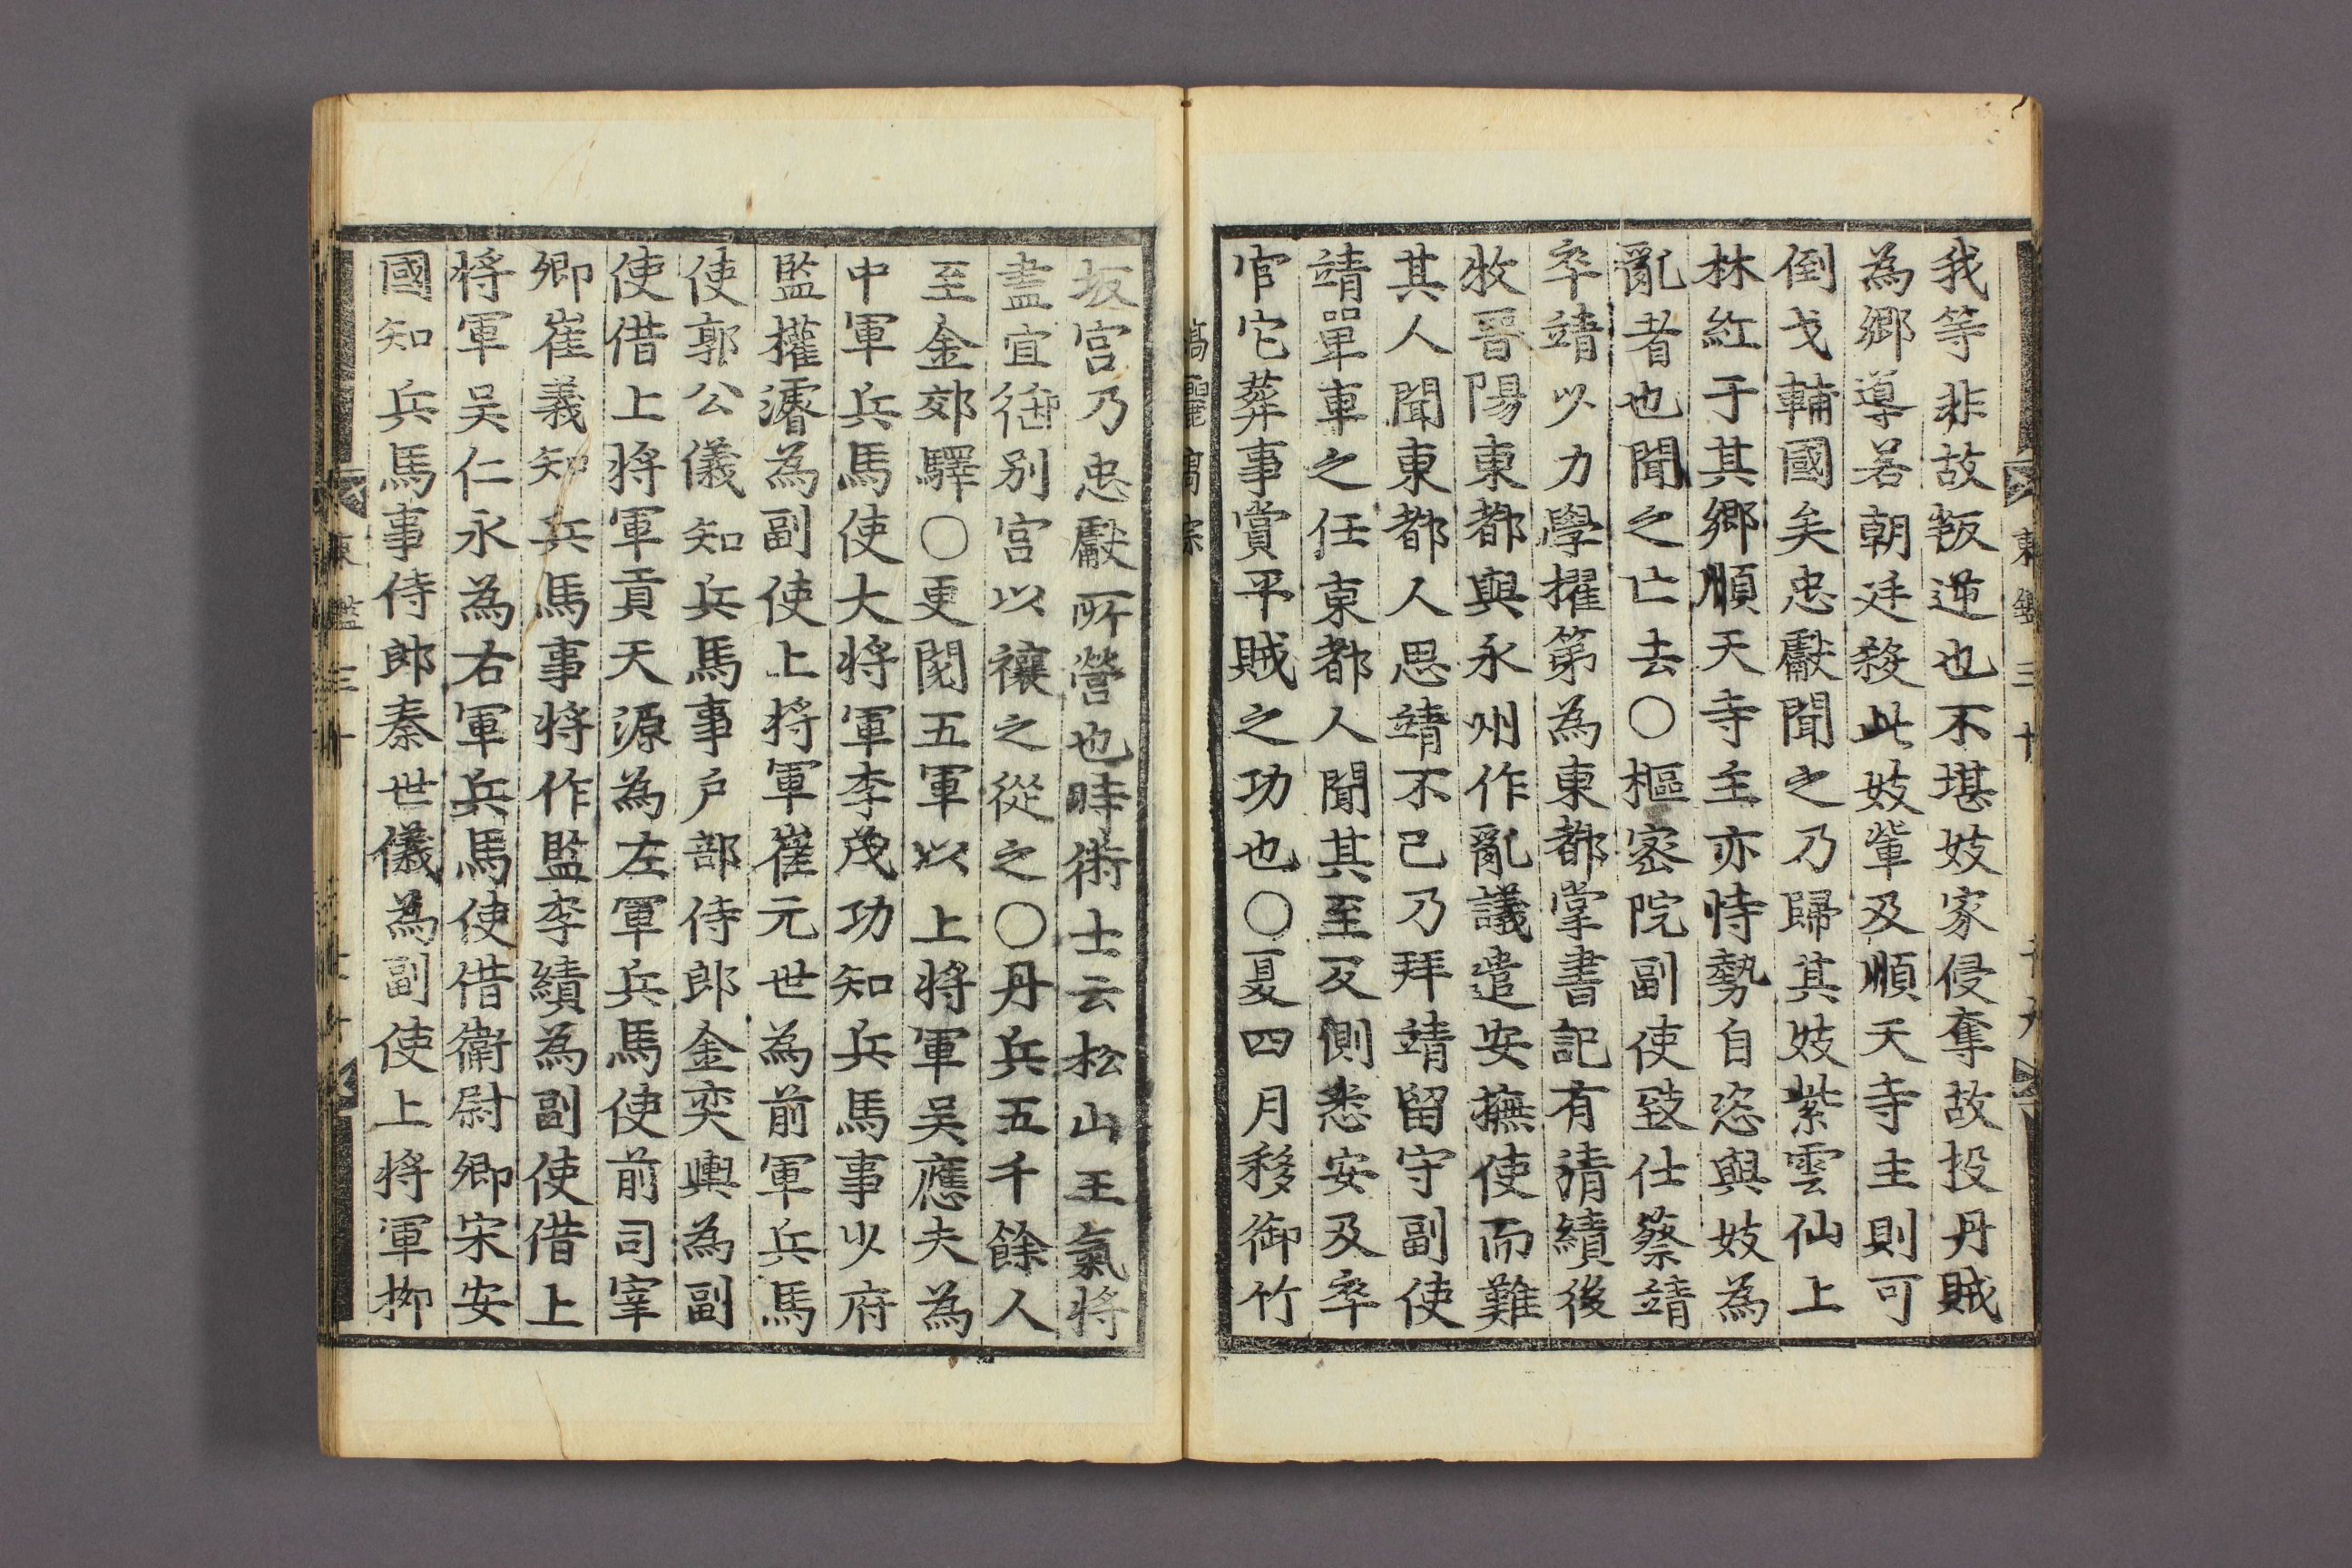 東鑑三十
我等非故叛逆也不堪妓家侵奪故投丹賊
為鄉導若朝廷殺此妓輩及順天寺主則可
倒戈輔國矣忠獻聞之乃歸其妓紫雲仙上
林紅于其鄉順天寺主亦恃勢自恣與妓為
亂者也聞之亡去○樞密院副使致仕蔡靖
卒靖以力學擢第為東都掌書記有淸績後
牧晋陽東都與永州作亂議遣安撫使而難
其人聞東都人思靖不已乃拜靖留守副使
靖單車之任東都人聞其至反側悉安及卒
官它葬事賞平賊之功也○夏四月移御竹
高麗高宗
坂宮乃忠獻所營也時術士云松山王氣將
盡宜徙別宮以禳之從之○丹兵五千餘人
至金郊驛○更閱五軍以上將軍吳應夫為
中軍兵馬使大將軍李茂功知兵馬事少府
監權濬為副使上將軍崔元世為前軍兵馬
使郭公儀知兵馬事戶部侍郎金奕輿為副
使借上將軍貢天源為左軍兵馬使前司宰
卿崔義知兵馬事將作監李績為副使借上
將軍吳仁永為右軍兵馬使借衛尉卿宋安
國知兵馬事侍郎秦世儀為副使上將軍柳
東鑑三十